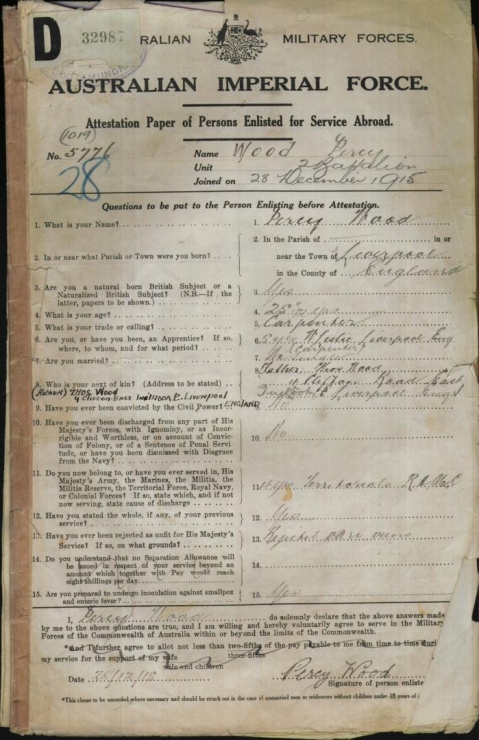 D 32987 RALIAN MILITARY FORCES.
AUSTRALIAN IMPERIAL FORCE.
Attestation Paper of Persons Enlisted for Service Abroad.
(1019)
No. 5771 Name Wood Percy
28 Unit 2 Battalion
Joined on 28 December 1915
Questions to be put to the Person Enlisting before Attestation.
1. What is your Name? 1. Percy Wood
2. In or near what Parish or Town were you born? 2. In the Parish of in or
near the Town of Liverpool
in the County of England
3. Are you a natural born British Subject or a
Naturalized British Subject? (N.B.—If the
latter, papers to be shown.) 3. Yes
4. What is your age? 4. 25
5. What is your trade or calling? 5. Carpenter
6. Are you, or have you been, an Apprentice? If so,
where, to whom, and for what period? 6. Liverpool Eng
7. Are you married? 7.
8. Who is your next of kin? (Address to be stated) 8. Father Thos Wood
(Father) THOS. WOOD Road East
LIVERPOOL Liverpool Eng
ENGLAND
9. Have you ever been convicted by the Civil Power? 9. No
10. Have you ever been discharged from any part of His
Majesty's Forces, with Ignominy, or as Incor-
rigible and Worthless, or on account of Conviction
of Felony, or of a Sentence of Penal Servi-
tude, or have you been dismissed with Disgrace
from the Navy? 10. No
11. Do you now belong to, or have you ever served in, His
Majesty's Army, the Marines, the Militia, the
Militia Reserve, the Territorial Force, Royal Navy,
or Colonial Forces? If so, state which, and if not
now serving, state cause of discharge 11. Yes Territorials
12. Have you stated the whole, if any, of your previous
service? 12. Yes
13. Have you ever been rejected as unfit for His Majesty's
Service? If so, on what grounds? 13. Rejected
14. Do you understand that no Separation Allowance will
be issued in respect of your service beyond an
amount which together with Pay would reach
eight shillings per day 14.
15. Are you prepared to undergo inoculation against smallpox
and enteric fever? 15. Yes
I, Percy Wood do solemnly declare that the above answers made
by me to the above questions are true, and I am willing and hereby voluntarily agree to serve in the Military
Forces of the Commonwealth of Australia within or beyond the limits of the Commonwealth.
*And I further agree to allot not less than two-fifths of the pay payable to me from time to time during
three-fifths
my service for the support of my wife
wife and children
Date Percy Wood
Signature of person enlisted
*This clause to be amended where necessary and should be struck out in the case of unmarried men or widowers without children under 18 years of